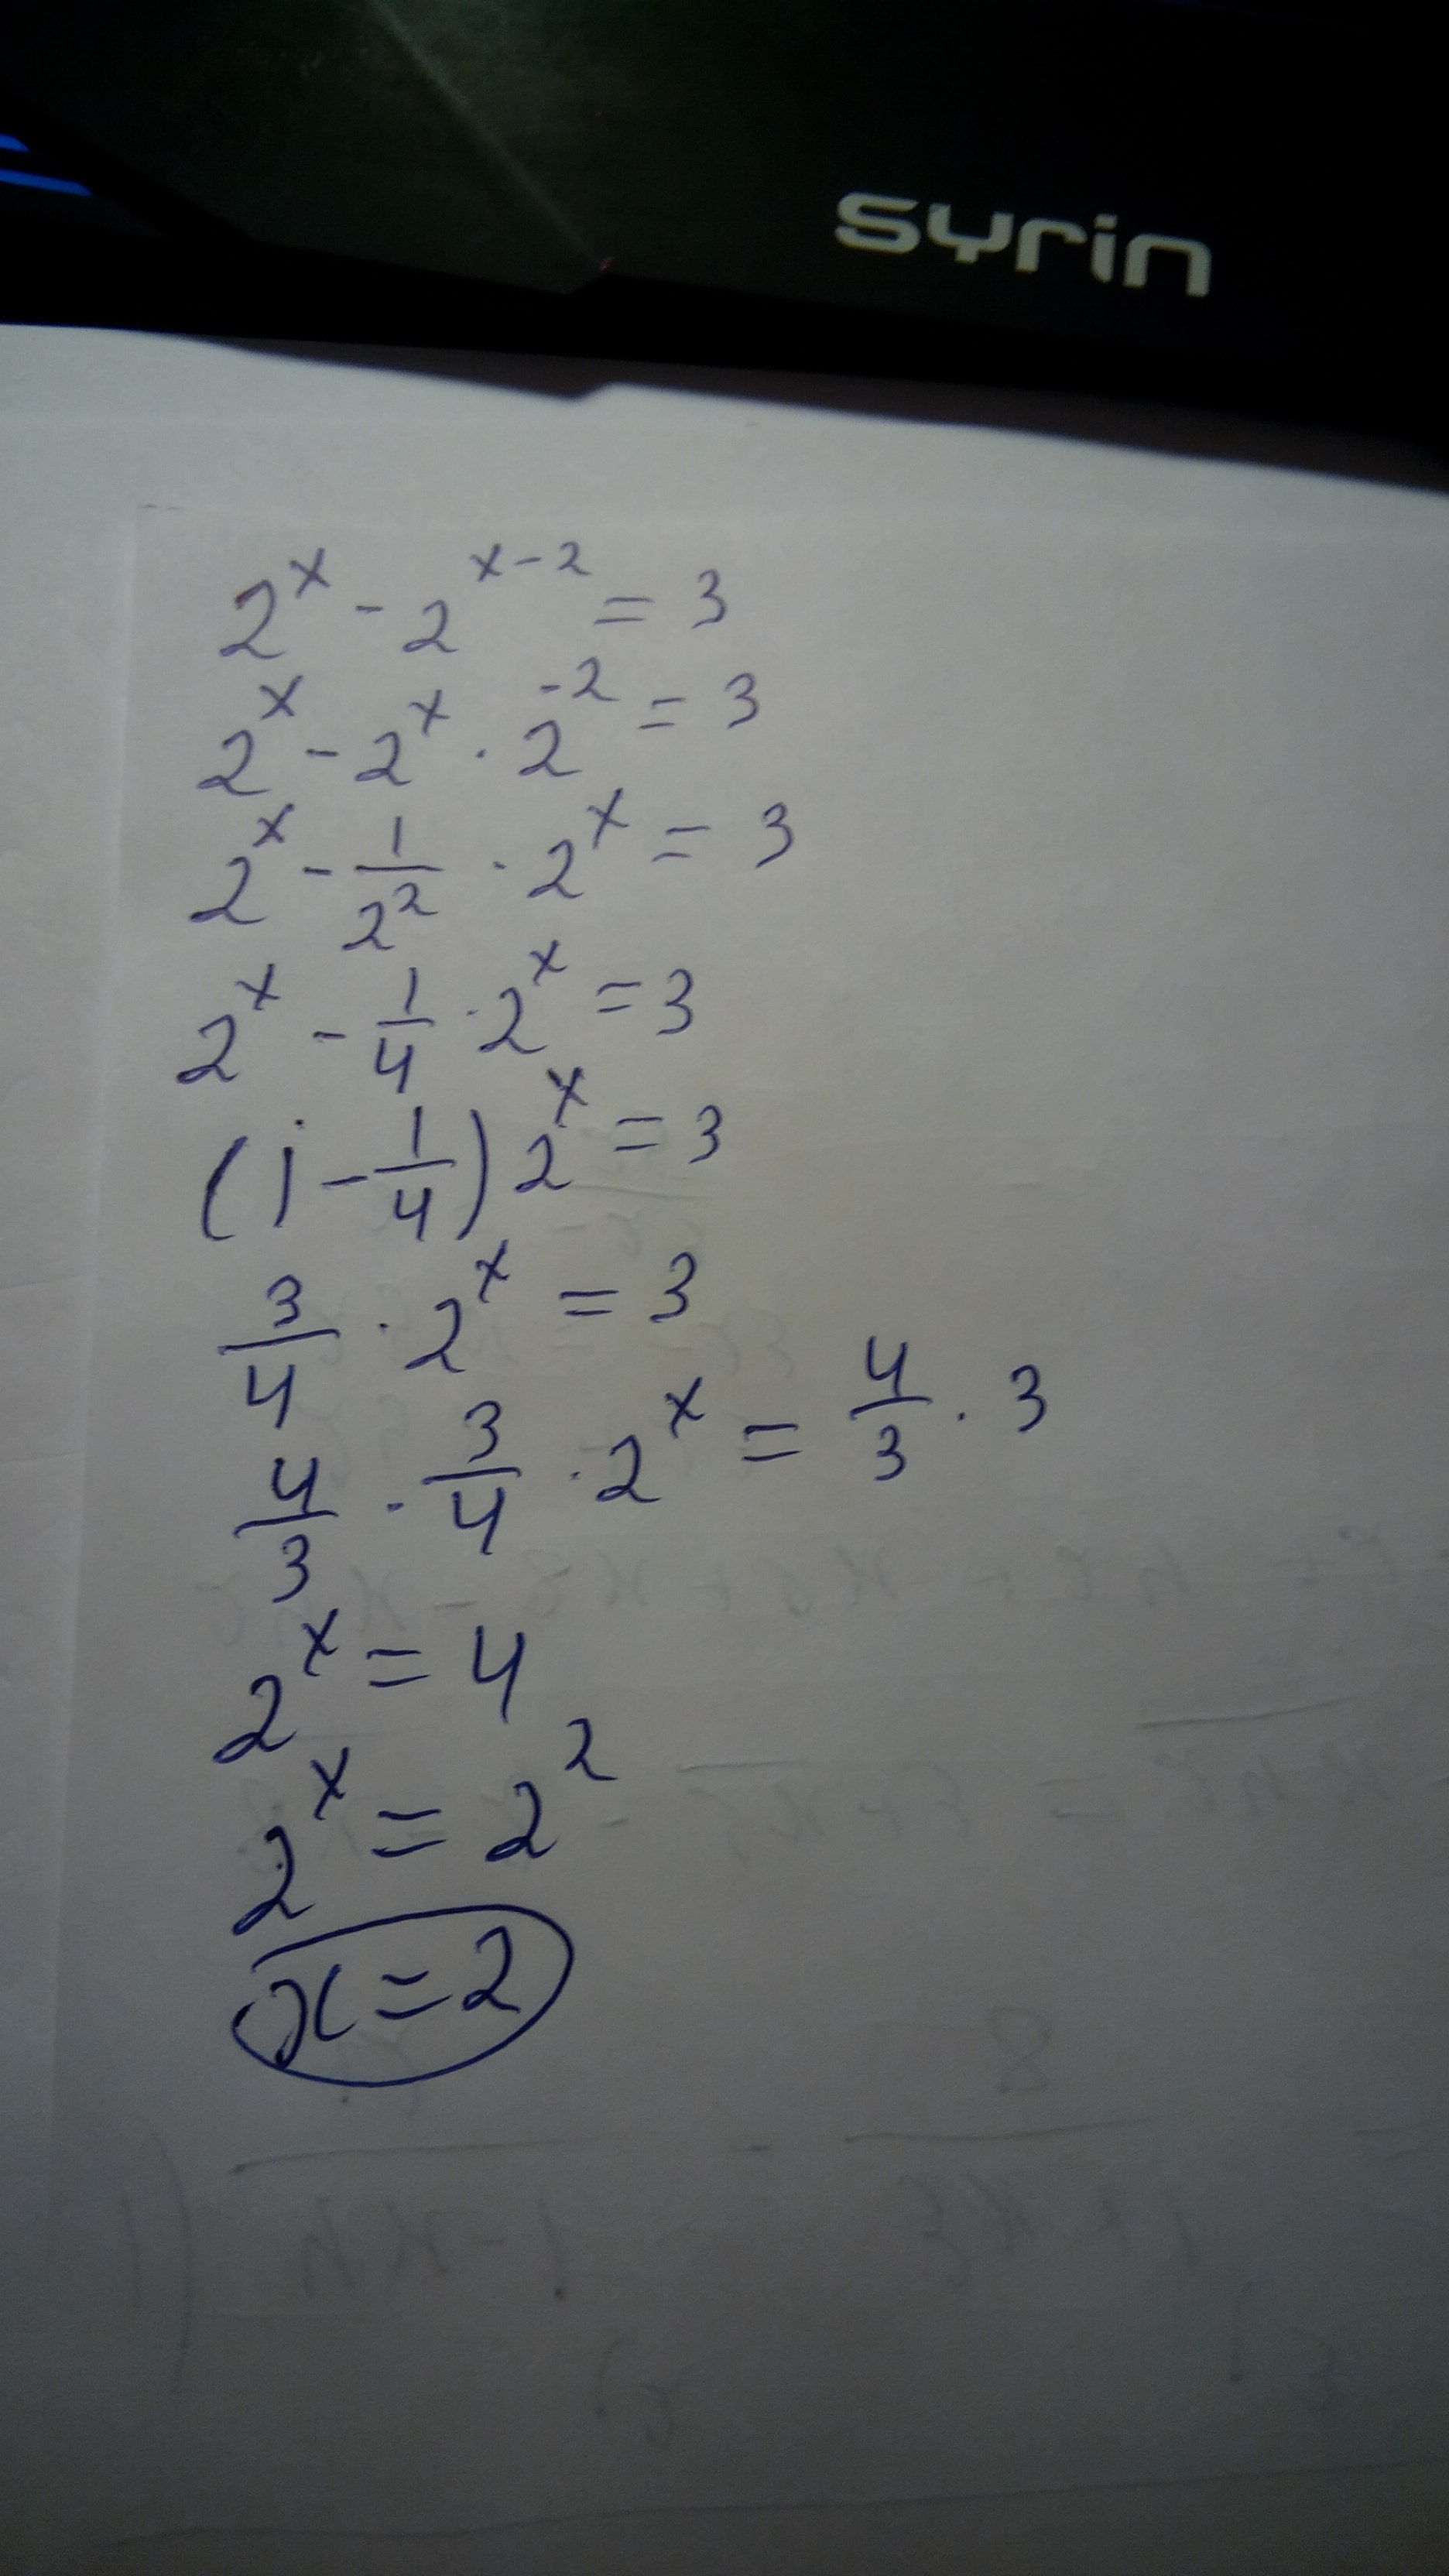 syrin
2^x - 2^(x-2) = 3
2^x - 2^x · 2^(-2) = 3
2^x - 1/2^2 · 2^x = 3
2^x - 1/4 · 2^x = 3
(1 - 1/4) 2^x = 3
3/4 · 2^x = 3
4/3 · 3/4 · 2^x = 4/3 · 3
2^x = 4
2^x = 2^2
x = 2